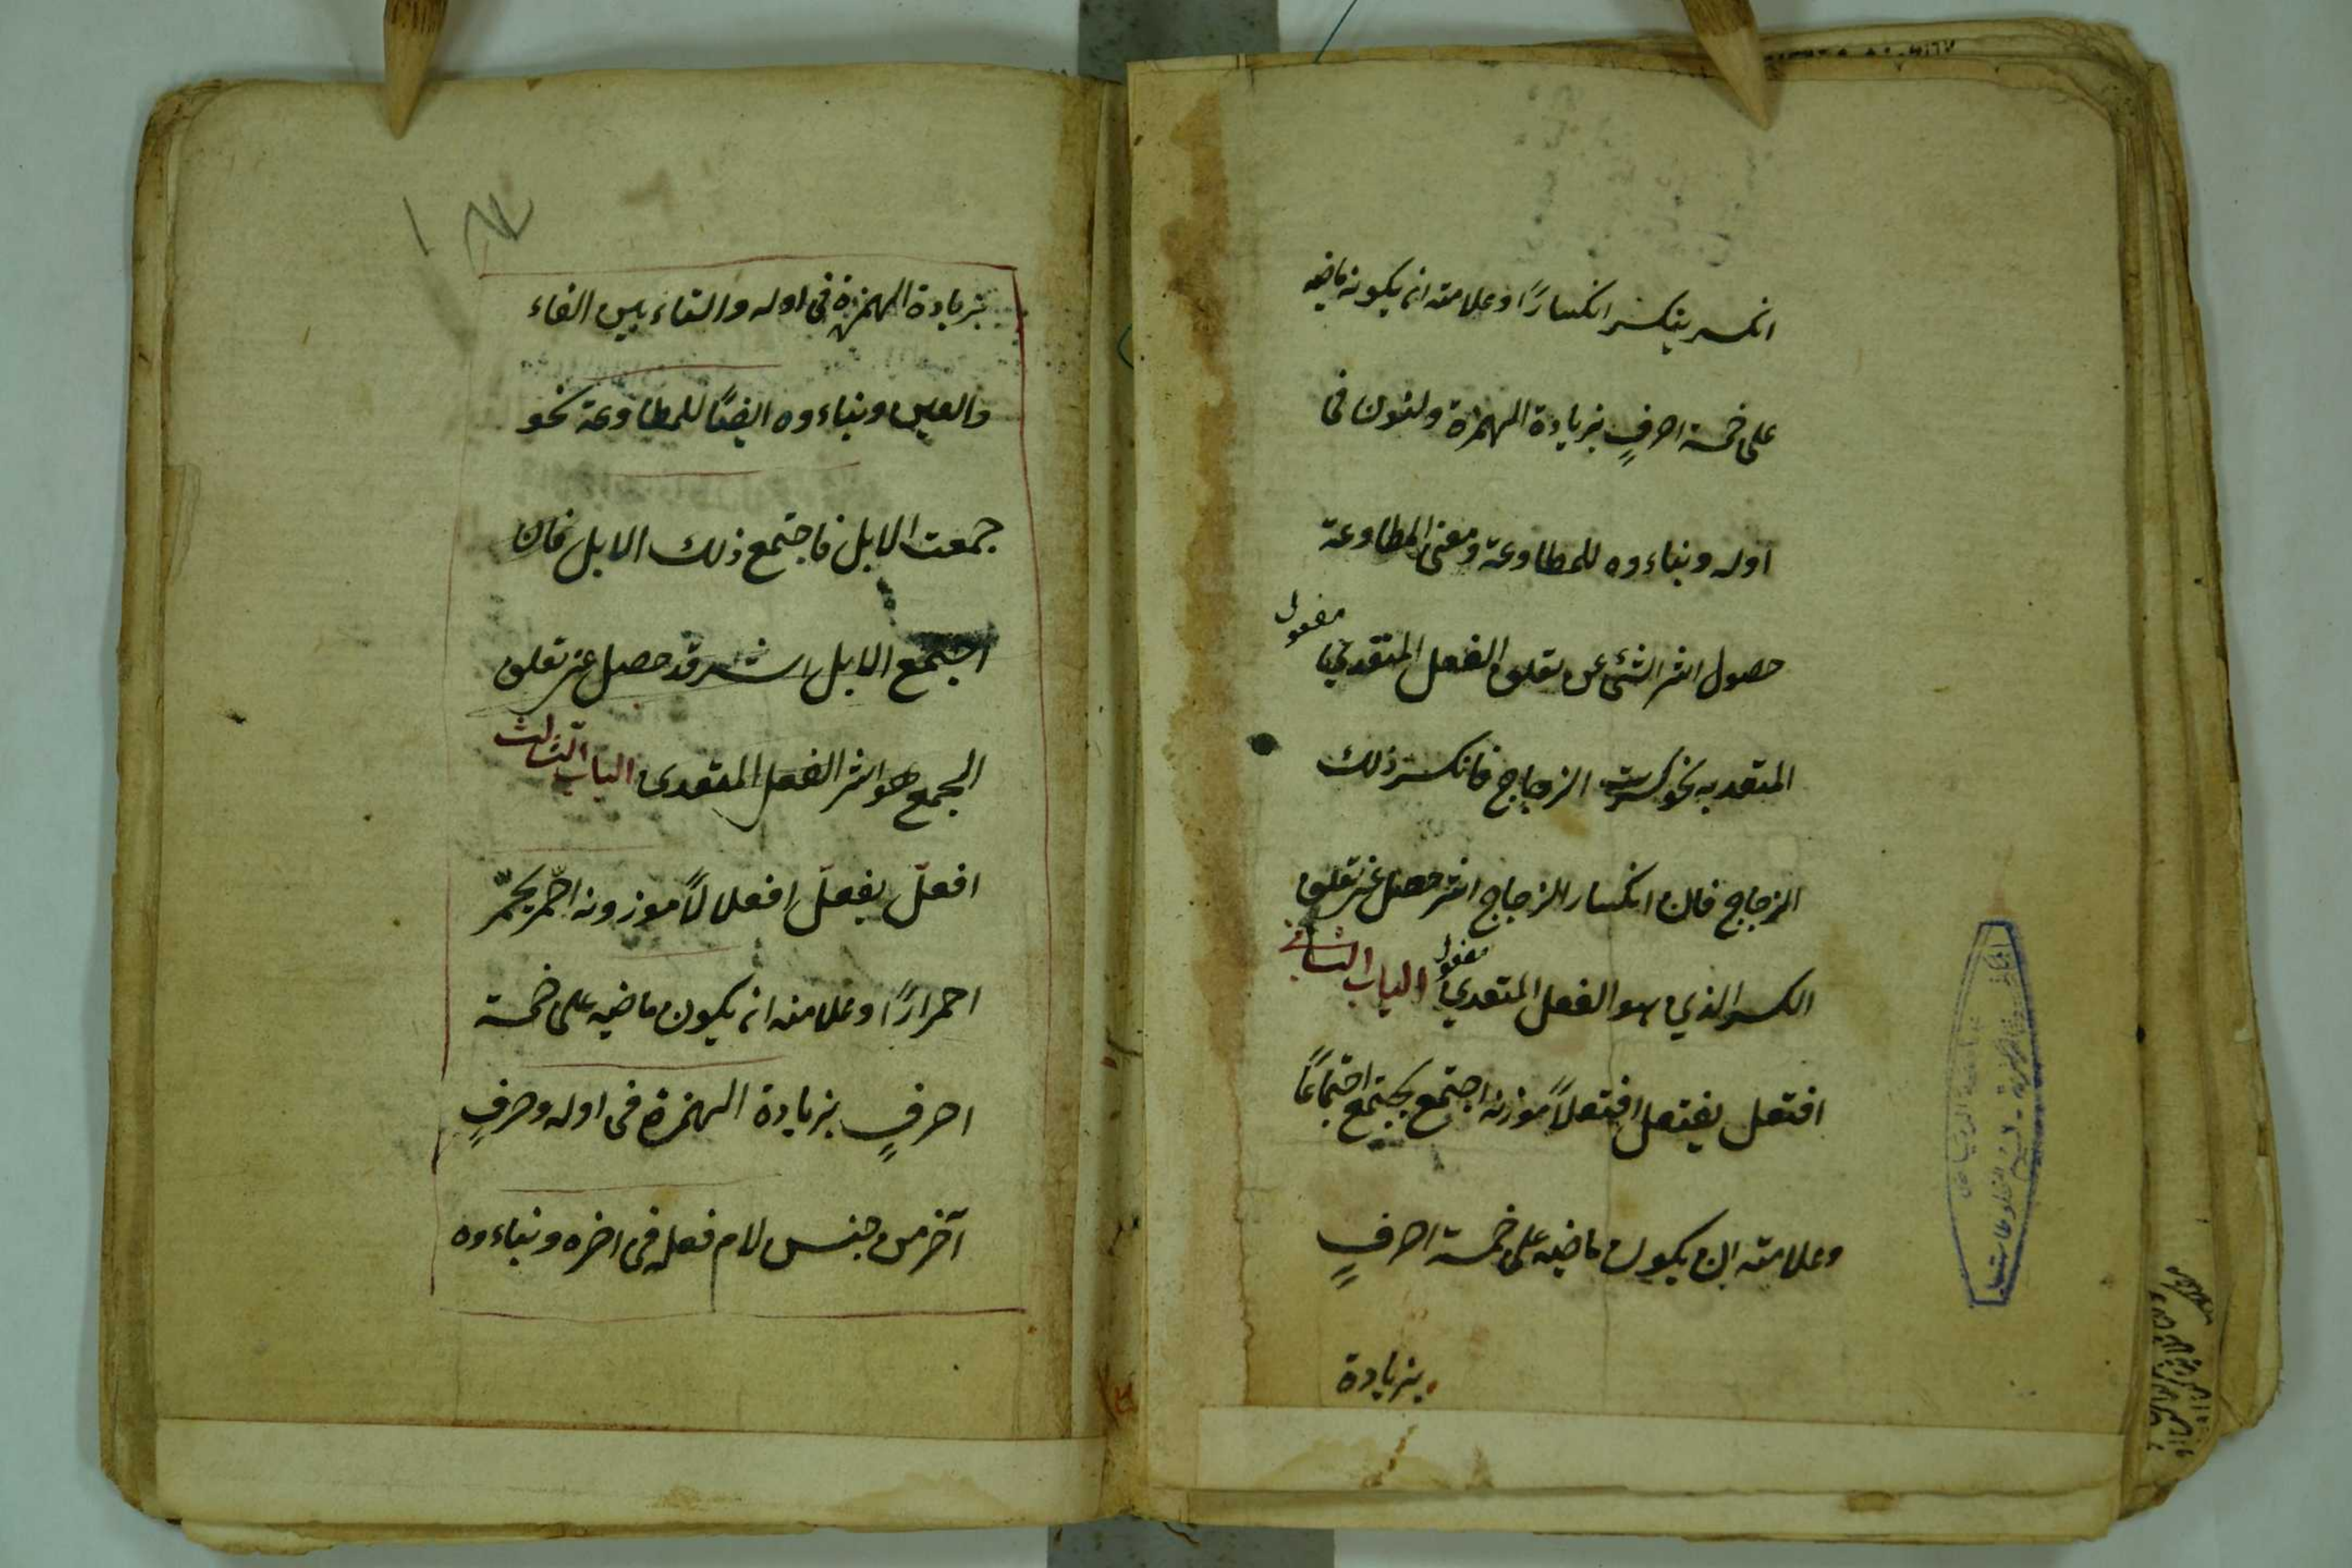 انكسر ينكسر انكسارًا وعلامته ان يكون ماضيه
على خمسة احرفٍ بزيادة الهمزة ولنون فى
اوله وبناءوه للمطاوعة ومعنى المطاوعة
حصول اثر الشئ عن تعلق الفعل المتعدي
مفعول
المتعد به نحو كسرت الزجاج فانكسر ذلك
الزجاج فان انكسار الزجاج اثر حصل عن تعلق
الكسر الذي هو الفعل المتعدي الباب الثاني
مفعول
افتعل يفتعل افتعلاً موزنه اجتمع يجتمع اجتماعًا
وعلامته ان يكون ماضيه على خمسة احرفٍ
بزيادة
بزيادة الهمزة فى اوله والتاء بين الفاء
والعين وبناءوه ايضًا للمطاوعة نحو
جمعت الابل فاجتمع ذلك الابل فان
اجتمع الابل اثر قد حصل عن تعلق
الجمع هو اثر الفعل المتعدى الباب الثالث
افعلّ يفعلّ افعلالاً موزونه احمرّ يحمرّ
احمرارًا وعلامته ان يكون ماضيه على خمسة
احرفٍ بزيادة الهمزة فى اوله وحرفٍ
آخر من جنس لام فعله فى اخره وبناءوه